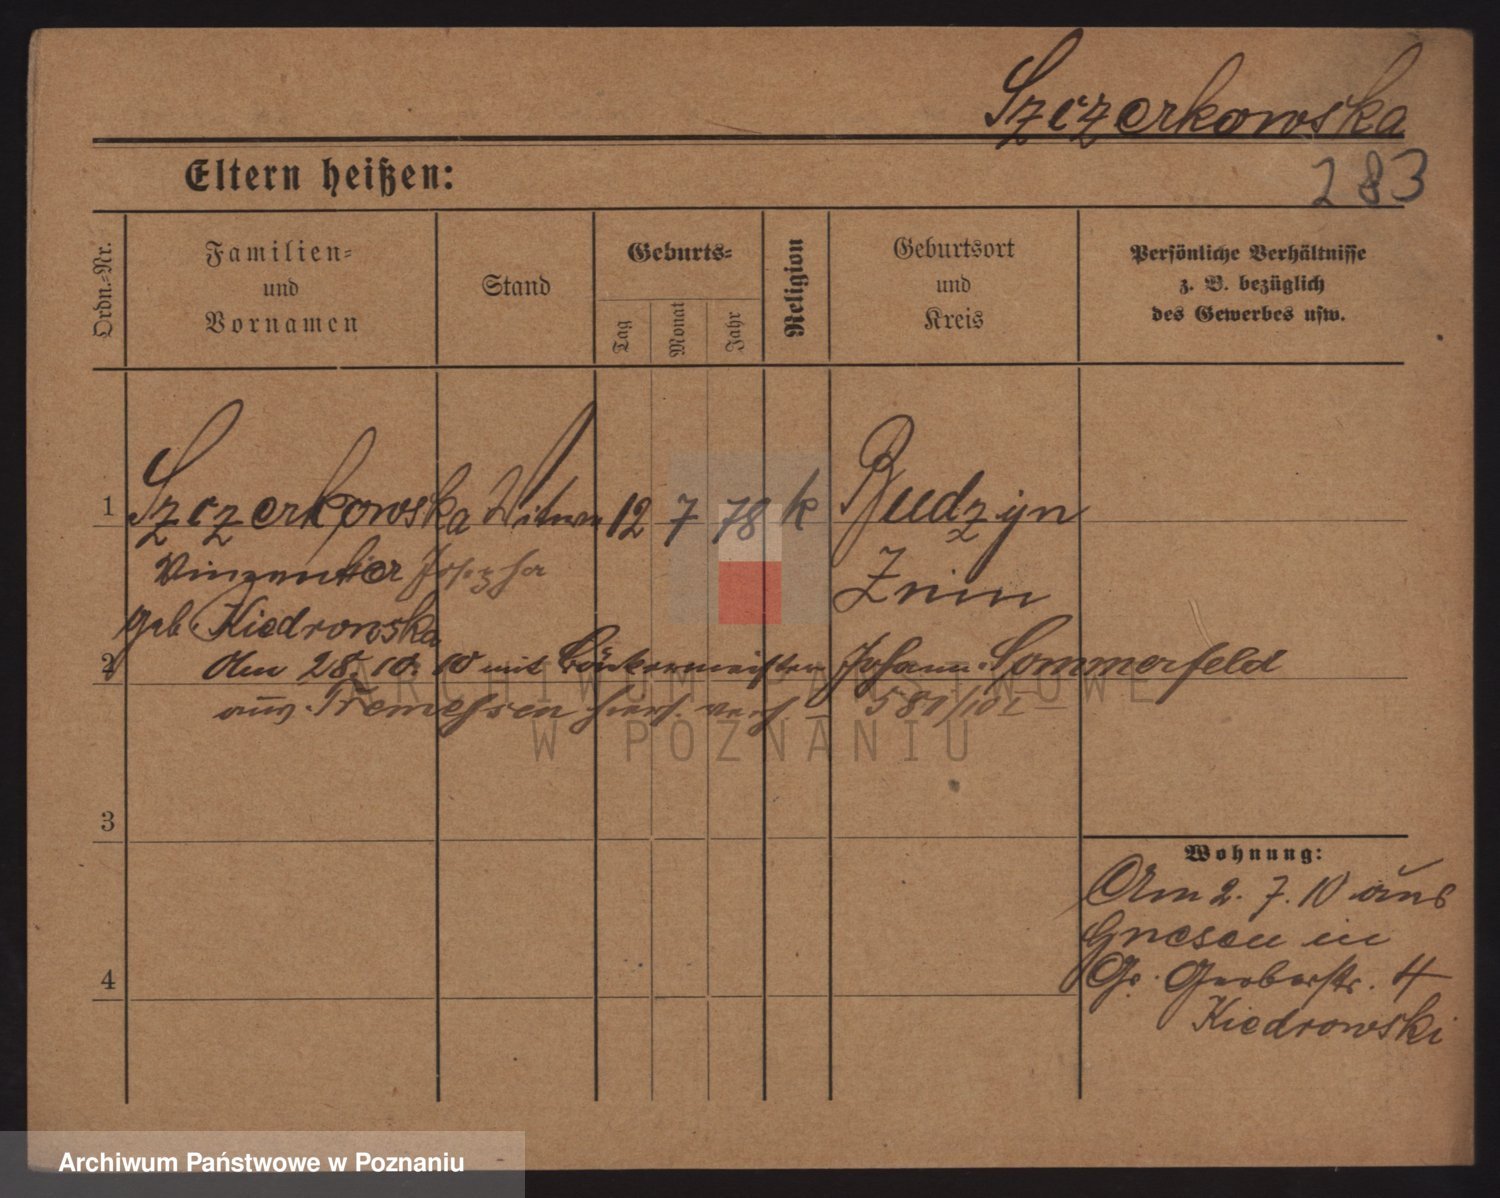 Szczerkowska
283
Eltern heißen:
Ordn.-Nr.
Familien-
und
Vornamen
Stand
Geburts-
Tag
Monat
Jahr
Religion
Geburtsort
und
Kreis
Persönliche Verhältnisse
z. B. bezüglich
des Gewerbes usw.
1
Szczerkowska Witwe 12 7 78 k Budzyn
Vinzentier Josepha Znin
geb. Kiedrowska
2
Am 28. 10. 10 mit Bäckermeister Johann Sommerfeld
aus Tremessen hier verh 581/10
3
4
Wohnung:
Am 2. 7. 10 aus
Gnesen in
Gr. Gerberstr. 4
Kiedrowski
ARCHIWUM PAŃSTWOWE
W POZNANIU
Archiwum Państwowe w Poznaniu